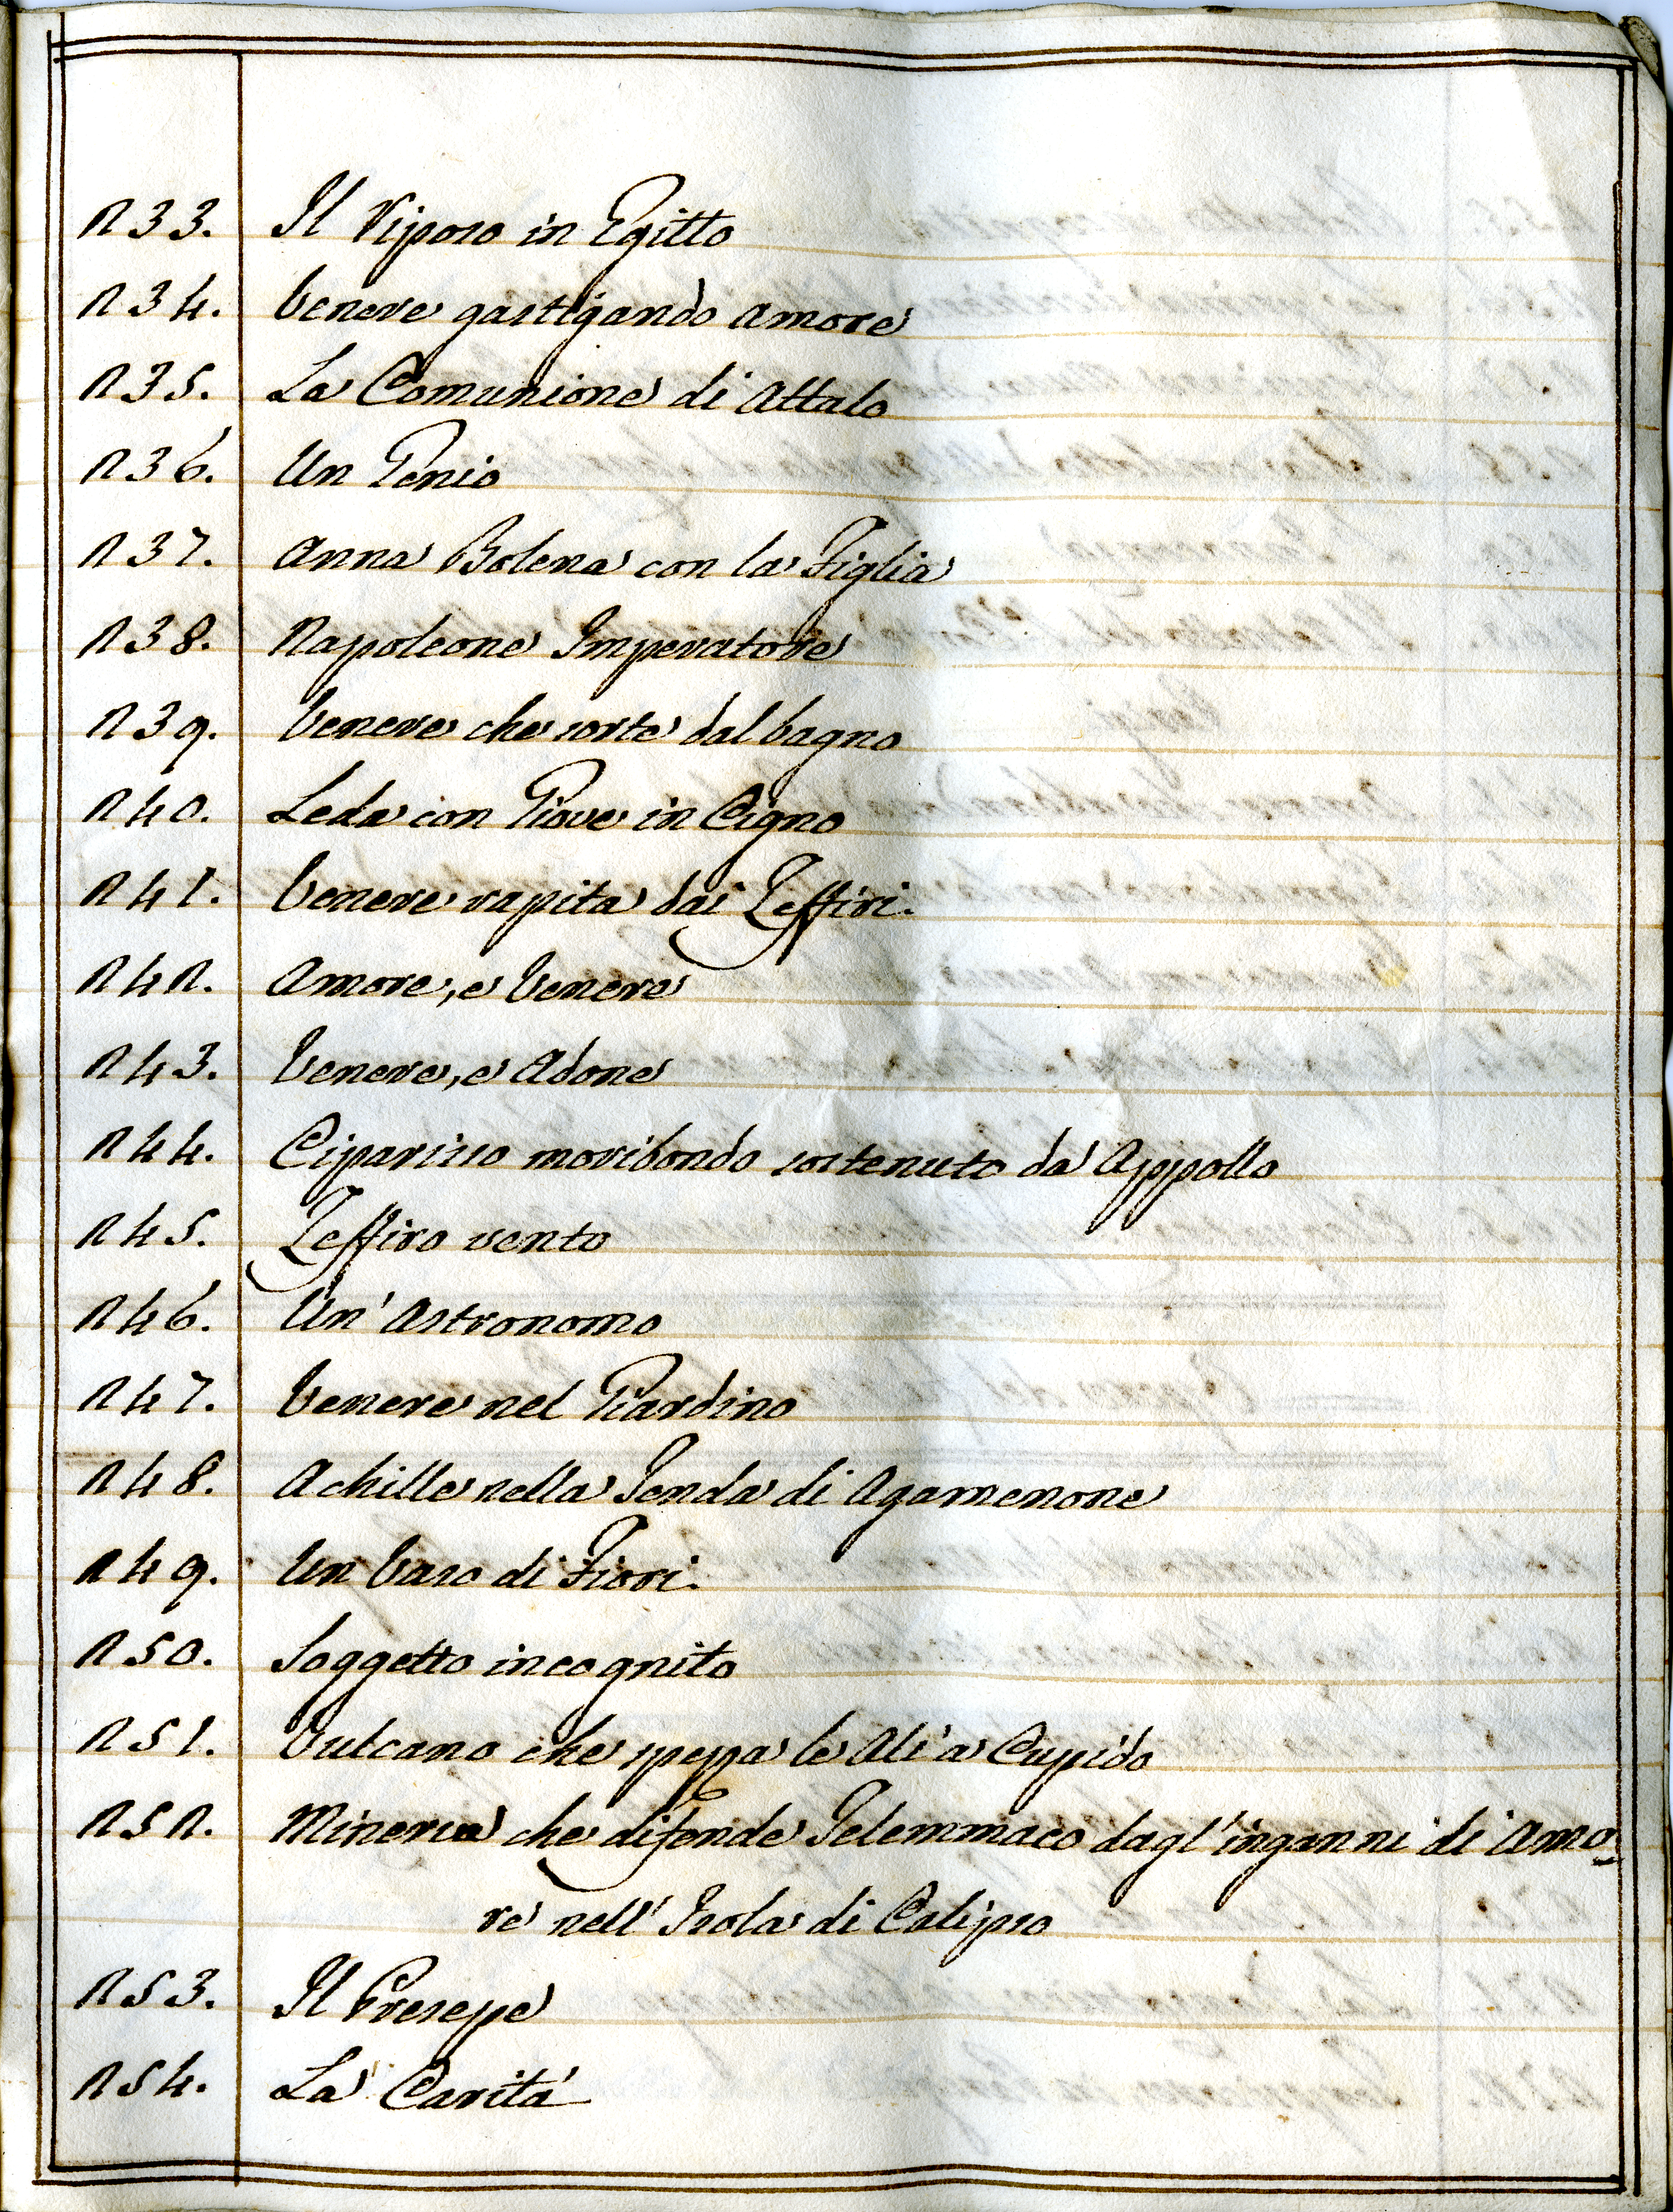 N 33. Il Riposo in Egitto
N 34. Venere gastigando Amore
N 35. La Comunione di Attala
N 36. Un Genio
N 37. Anna Bolena con la Figlia
N 38. Napoleone Imperatore
N 39. Venere che sorte dal bagno
N 40. Leda con Giove in Cigno
N 41. Venere rapita dai Zeffiri.
N 42. Amore, e Venere
N 43. Venere, e Adone
N 44. Ciparisso moribondo sostenuto da Appollo
N 45. Zeffiro vento
N 46. Un' Astronomo
N 47. Venere nel Giardino
N 48. Achille nella Tenda di Agamenone
N 49. Un Vaso di Fiori.
N 50. Soggetto incognito
N 51. Vulcano che spezza le Ali a Cupido
N 52. Minerva che difende Telemmaco dagl' inganni di Amo-
re nell' Isola di Calipso
N 53. Il Presepe
N 54. La Carità